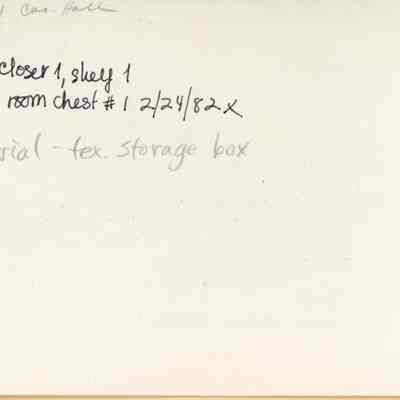 Closer 1, shelf 1
room chest # 1 2/24/82 x
rial - tex. storage box